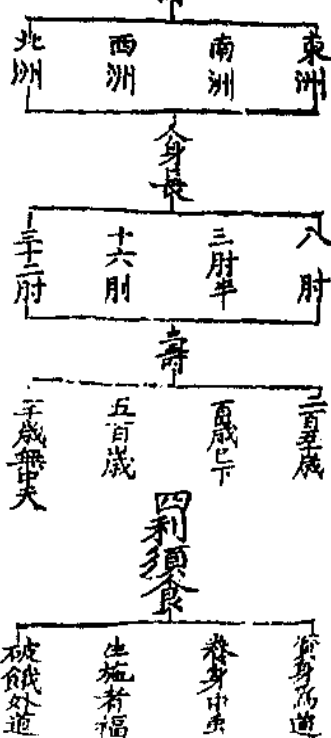 東洲
南洲
西洲
北洲
人身長
八肘
三肘半
十六肘
三十二肘
壽
二百五十歲
百歲已下
五百歲
千歲無中夭
四利須食
資身爲道
養身中虫
生施者福
破餓外道